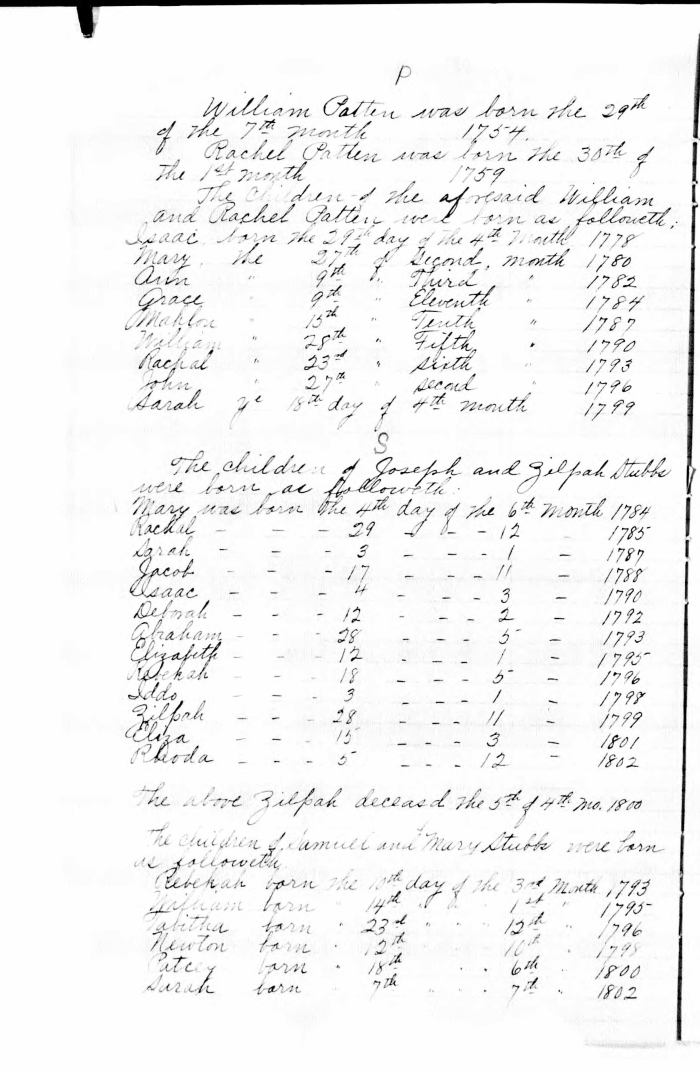 P
William Patten was born the 29th
of the 7th month 1754.
Rachel Patten was born the 30th of
the 1st month 1759
The children of the aforesaid William
and Rachel Patten were born as followeth;
Isaac born the 29th day of the 4th Month 1778
Mary, the 27th of Second, month 1780
Ann " 9th " Third " 1782
Grace " 9th " Eleventh " 1784
Mahlon " 15th " Tenth " 1787
William " 28th " Fifth " 1790
Rachal " 23rd " sixth " 1793
John " 27th " second " 1796
Sarah ye 18th day of 4th month 1799
S
The children of Joseph and Zilpah Stubbs
were born as followeth:
Mary was born the 4th day of the 6th Month 1784
Rachel - - - 29 - - - 12 - 1785
Sarah - - - 3 - - - 1 - 1787
Jacob - - - 17 11 - 1788
Isaac - - - 4 - - - 3 - 1790
Deborah - - - 12 - - - 2 - 1792
Abraham - - - 28 - - - 5 - 1793
Elizabeth - - - 12 - - - 1 - 1795
Rebekah - - - 18 - - - 5 - 1796
Iddo - - - 3 - - - 1 - 1798
Zilpah - - - 28 - - - 11 - 1799
Eliza - - - 15 - - - 3 - 1801
Rhoda - - - 5 - - - 12 - 1802
The above Zilpah deceasd the 5th of 4th Mo. 1800
The children of Samuel and Mary Stubbs were born
as followeth
Rebekah born the 10th day of the 3rd Month 1793
William born " 14th " " 1st " 1795
Tabitha born " 23rd " " 12th " 1796
Newton born " 12th " " 10th " 1798
Patcey born " 18th " " 6th " 1800
Sarah born " 7th " " 7th " 1802